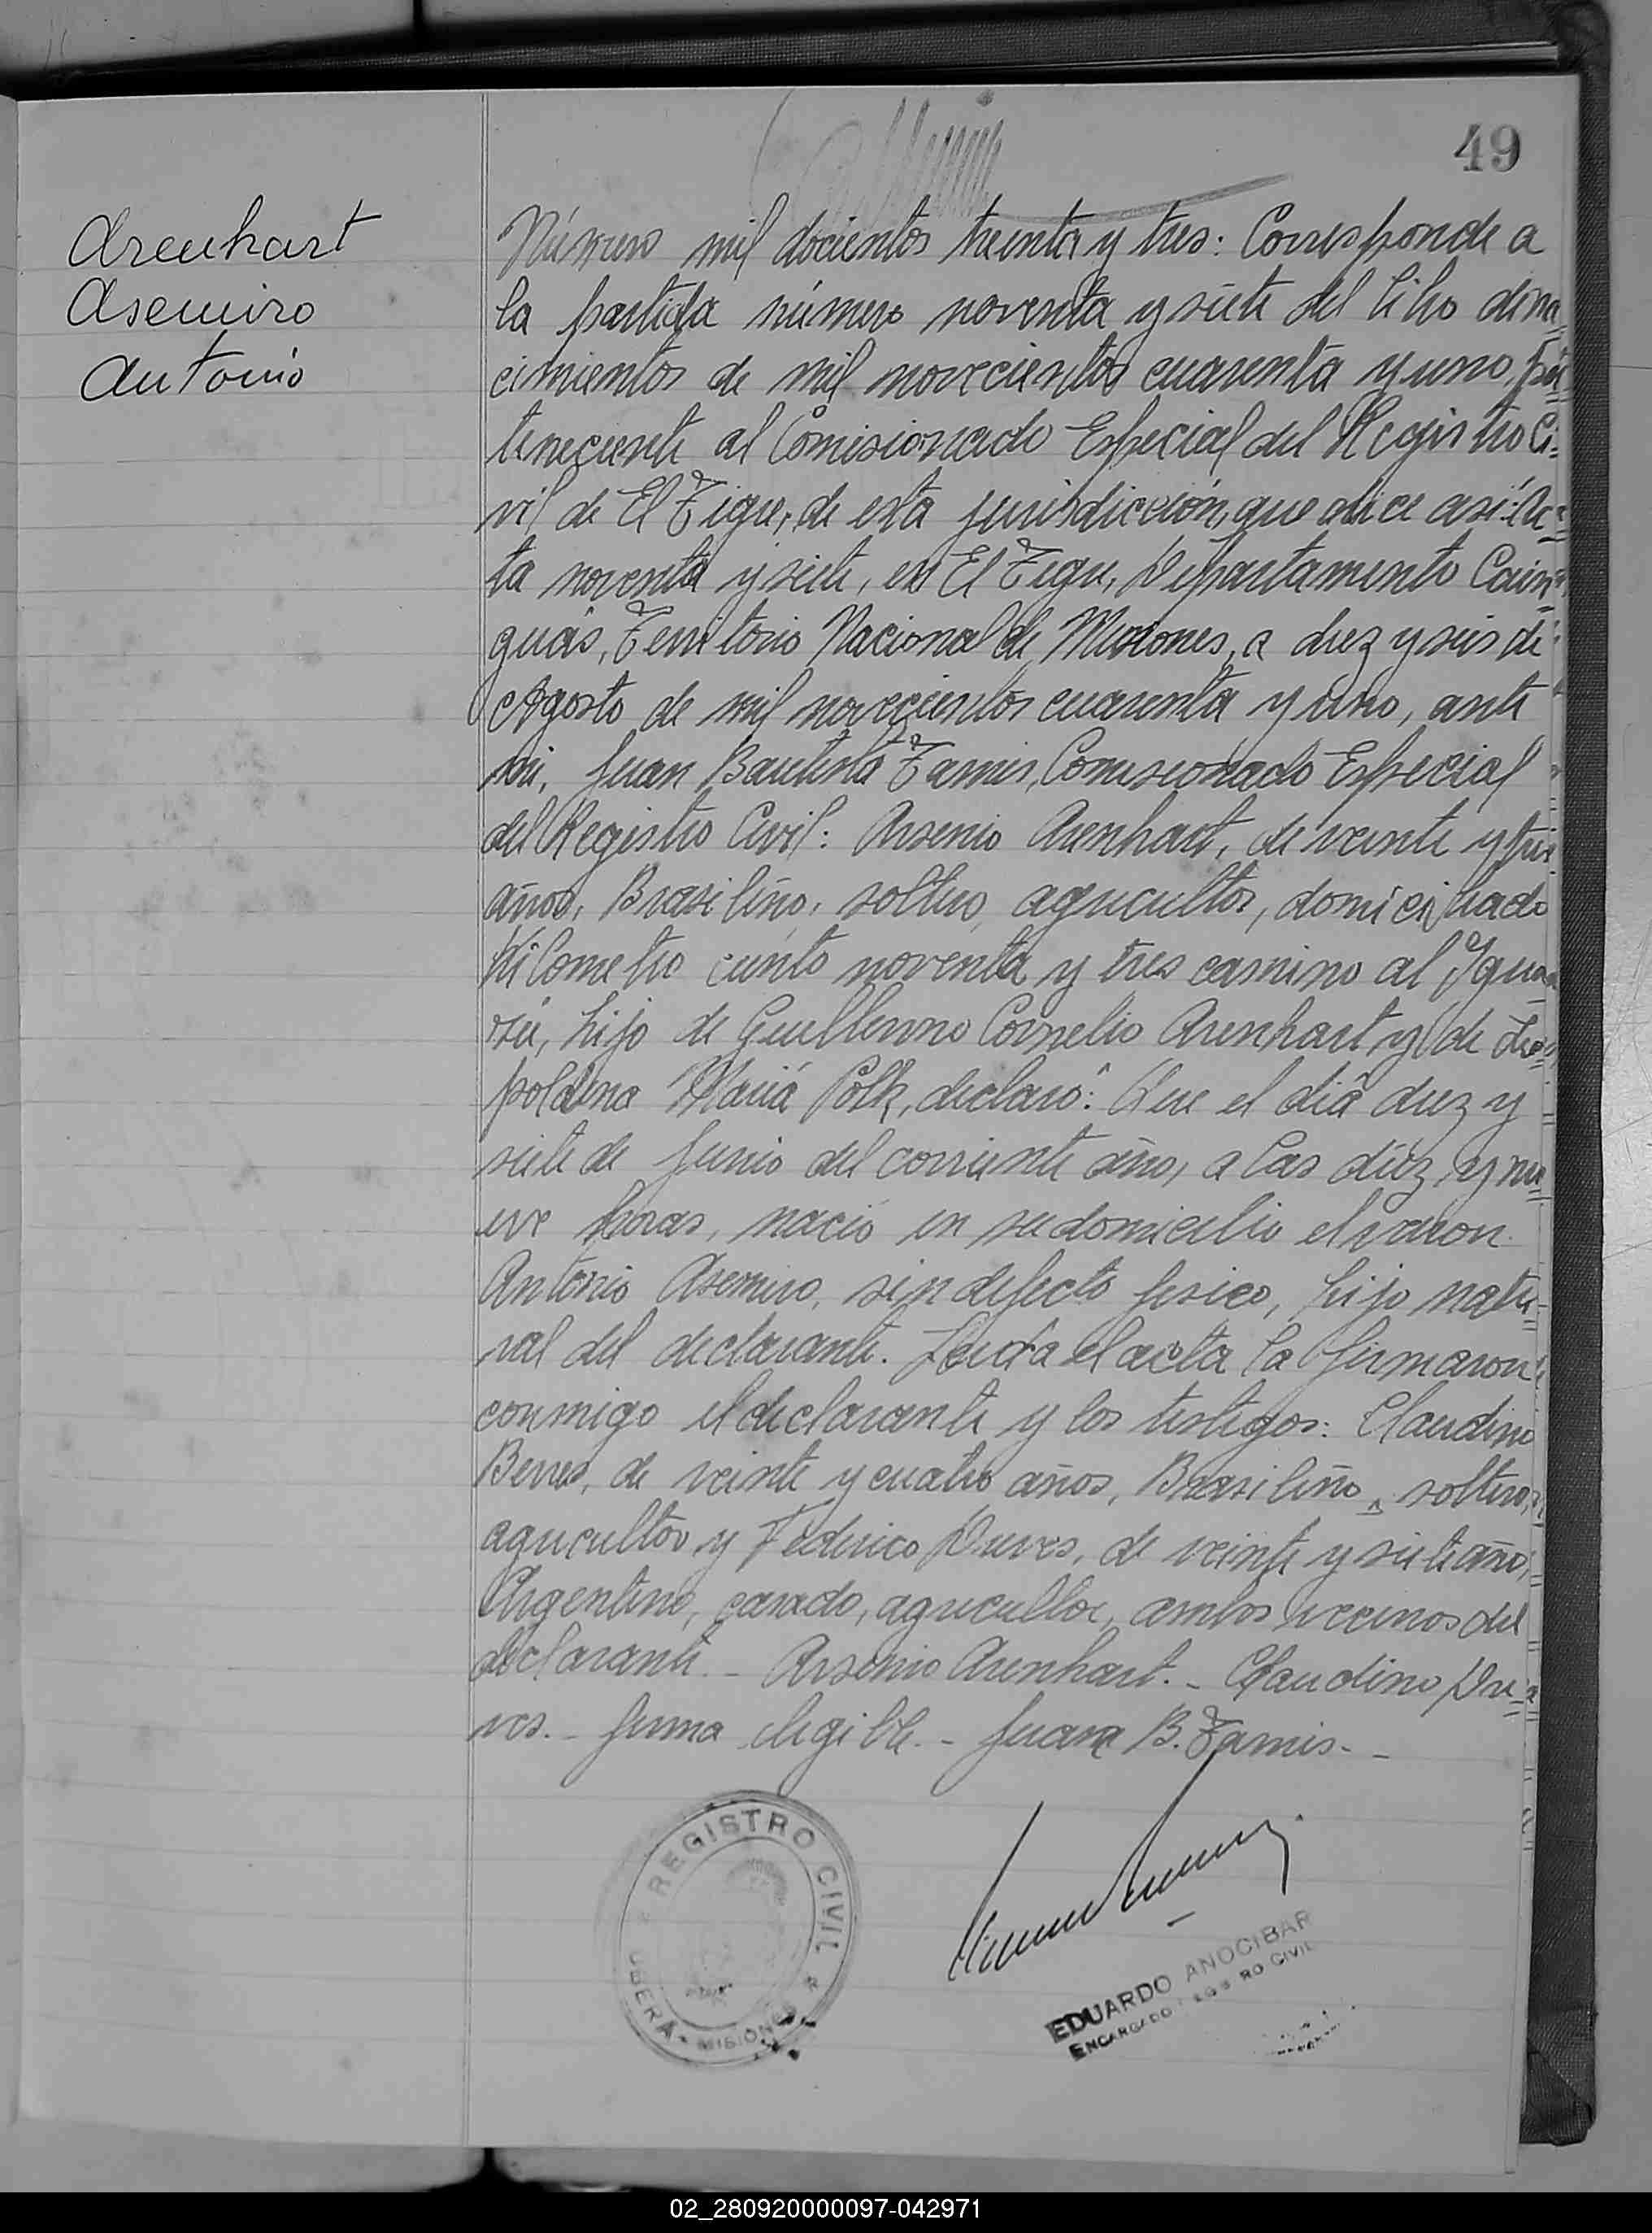 49
Arenhart
Asemiro
Antonio
Número mil docientos treinta y tres: Corresponde a
la partida número noventa y siete del libro de na=
cimientos de mil novecientos cuarenta y uno, per=
teneciente al Comisionado Especial del Registro Ci=
vil de El Tigre, de esta jurisdicción, que dice asi: "Ac=
ta noventa y siete, en El Tigre, Departamento Cain=
guás, Territorio Nacional de Misiones, a diez y seis de
Agosto de mil novecientos cuarenta y uno, ante
mi, Juan Bautista Tamis, Comisionado Especial
del Registro Civil: Arsenio Arenhart, de veinte y tres
años, Brasileño, soltero, agricultor, domiciliado
Kilometro ciento noventa y tres camino al Igua=
zú, hijo de Guillermo Cornelio Arenhart y de Leo=
poldina Mariá Polk, declaró: Que el diá diez y
siete de Junio del corriente año, a las diéz y nu=
eve horas, nació en su domicilio el varon
Antonio Asemiro, sin defecto fisico, hijo natu=
ral del declarante. Leida el acta la firmaron
conmigo el declarante y los testigos: Claudino
Berres, de veinte y cuatro años, Brasileño, soltero,
agricultor y Federico Drevs, de veinte y siete años,
Argentino, casado, agricultor, ambos vecinos del
declarante. - Arsenio Arenhart. - Claudino Dre=
ves. - firma ilegible. - Juan B. Tamis. -
REGISTRO CIVIL
OBERÁ - MISIONES
EDUARDO ANOCIBAR
ENCARGADO REGISTRO CIVIL
02_280920000097-042971